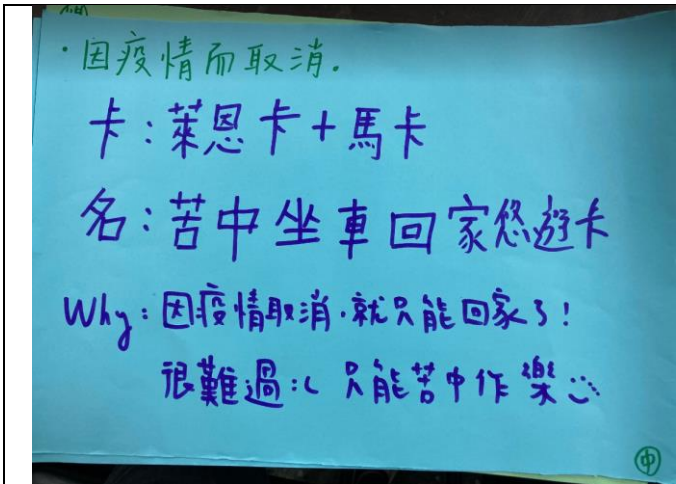 ·因疫情而取消.
卡:萊恩卡+馬卡
名:苦中坐車回家悠遊卡
Why:因疫情取消,就只能回家了!
很難過:( 只能苦中作樂:)
中